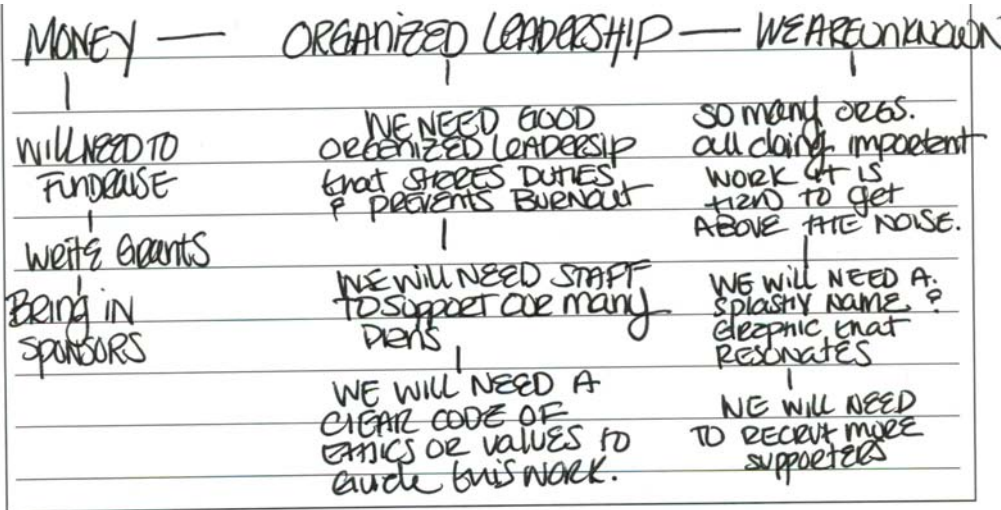 MONEY — ORGANIZED LEADERSHIP — WE ARE UNKNOWN
WILL NEED TO
FUNDRAISE
WRITE GRANTS
BRING IN
SPONSORS
WE NEED GOOD
ORGENIZED LEADERSIP
that SHARES DUTIES
& PREVENTS BURNOUT
WE WILL NEED STAFF
TO SUPPORT OUR many
PLANS
WE WILL NEED A
CLEAR CODE OF
ETHICS OR VALUES TO
GUIDE this WORK.
SO many ORGS.
all doing important
WORK IT IS
HARD TO get
ABOVE THE NOISE.
WE WILL NEED A
SPLASHY NAME &
GRAPHIC that
RESONATES
WE WILL NEED
TO RECRUT MORE
SUPPORTERS